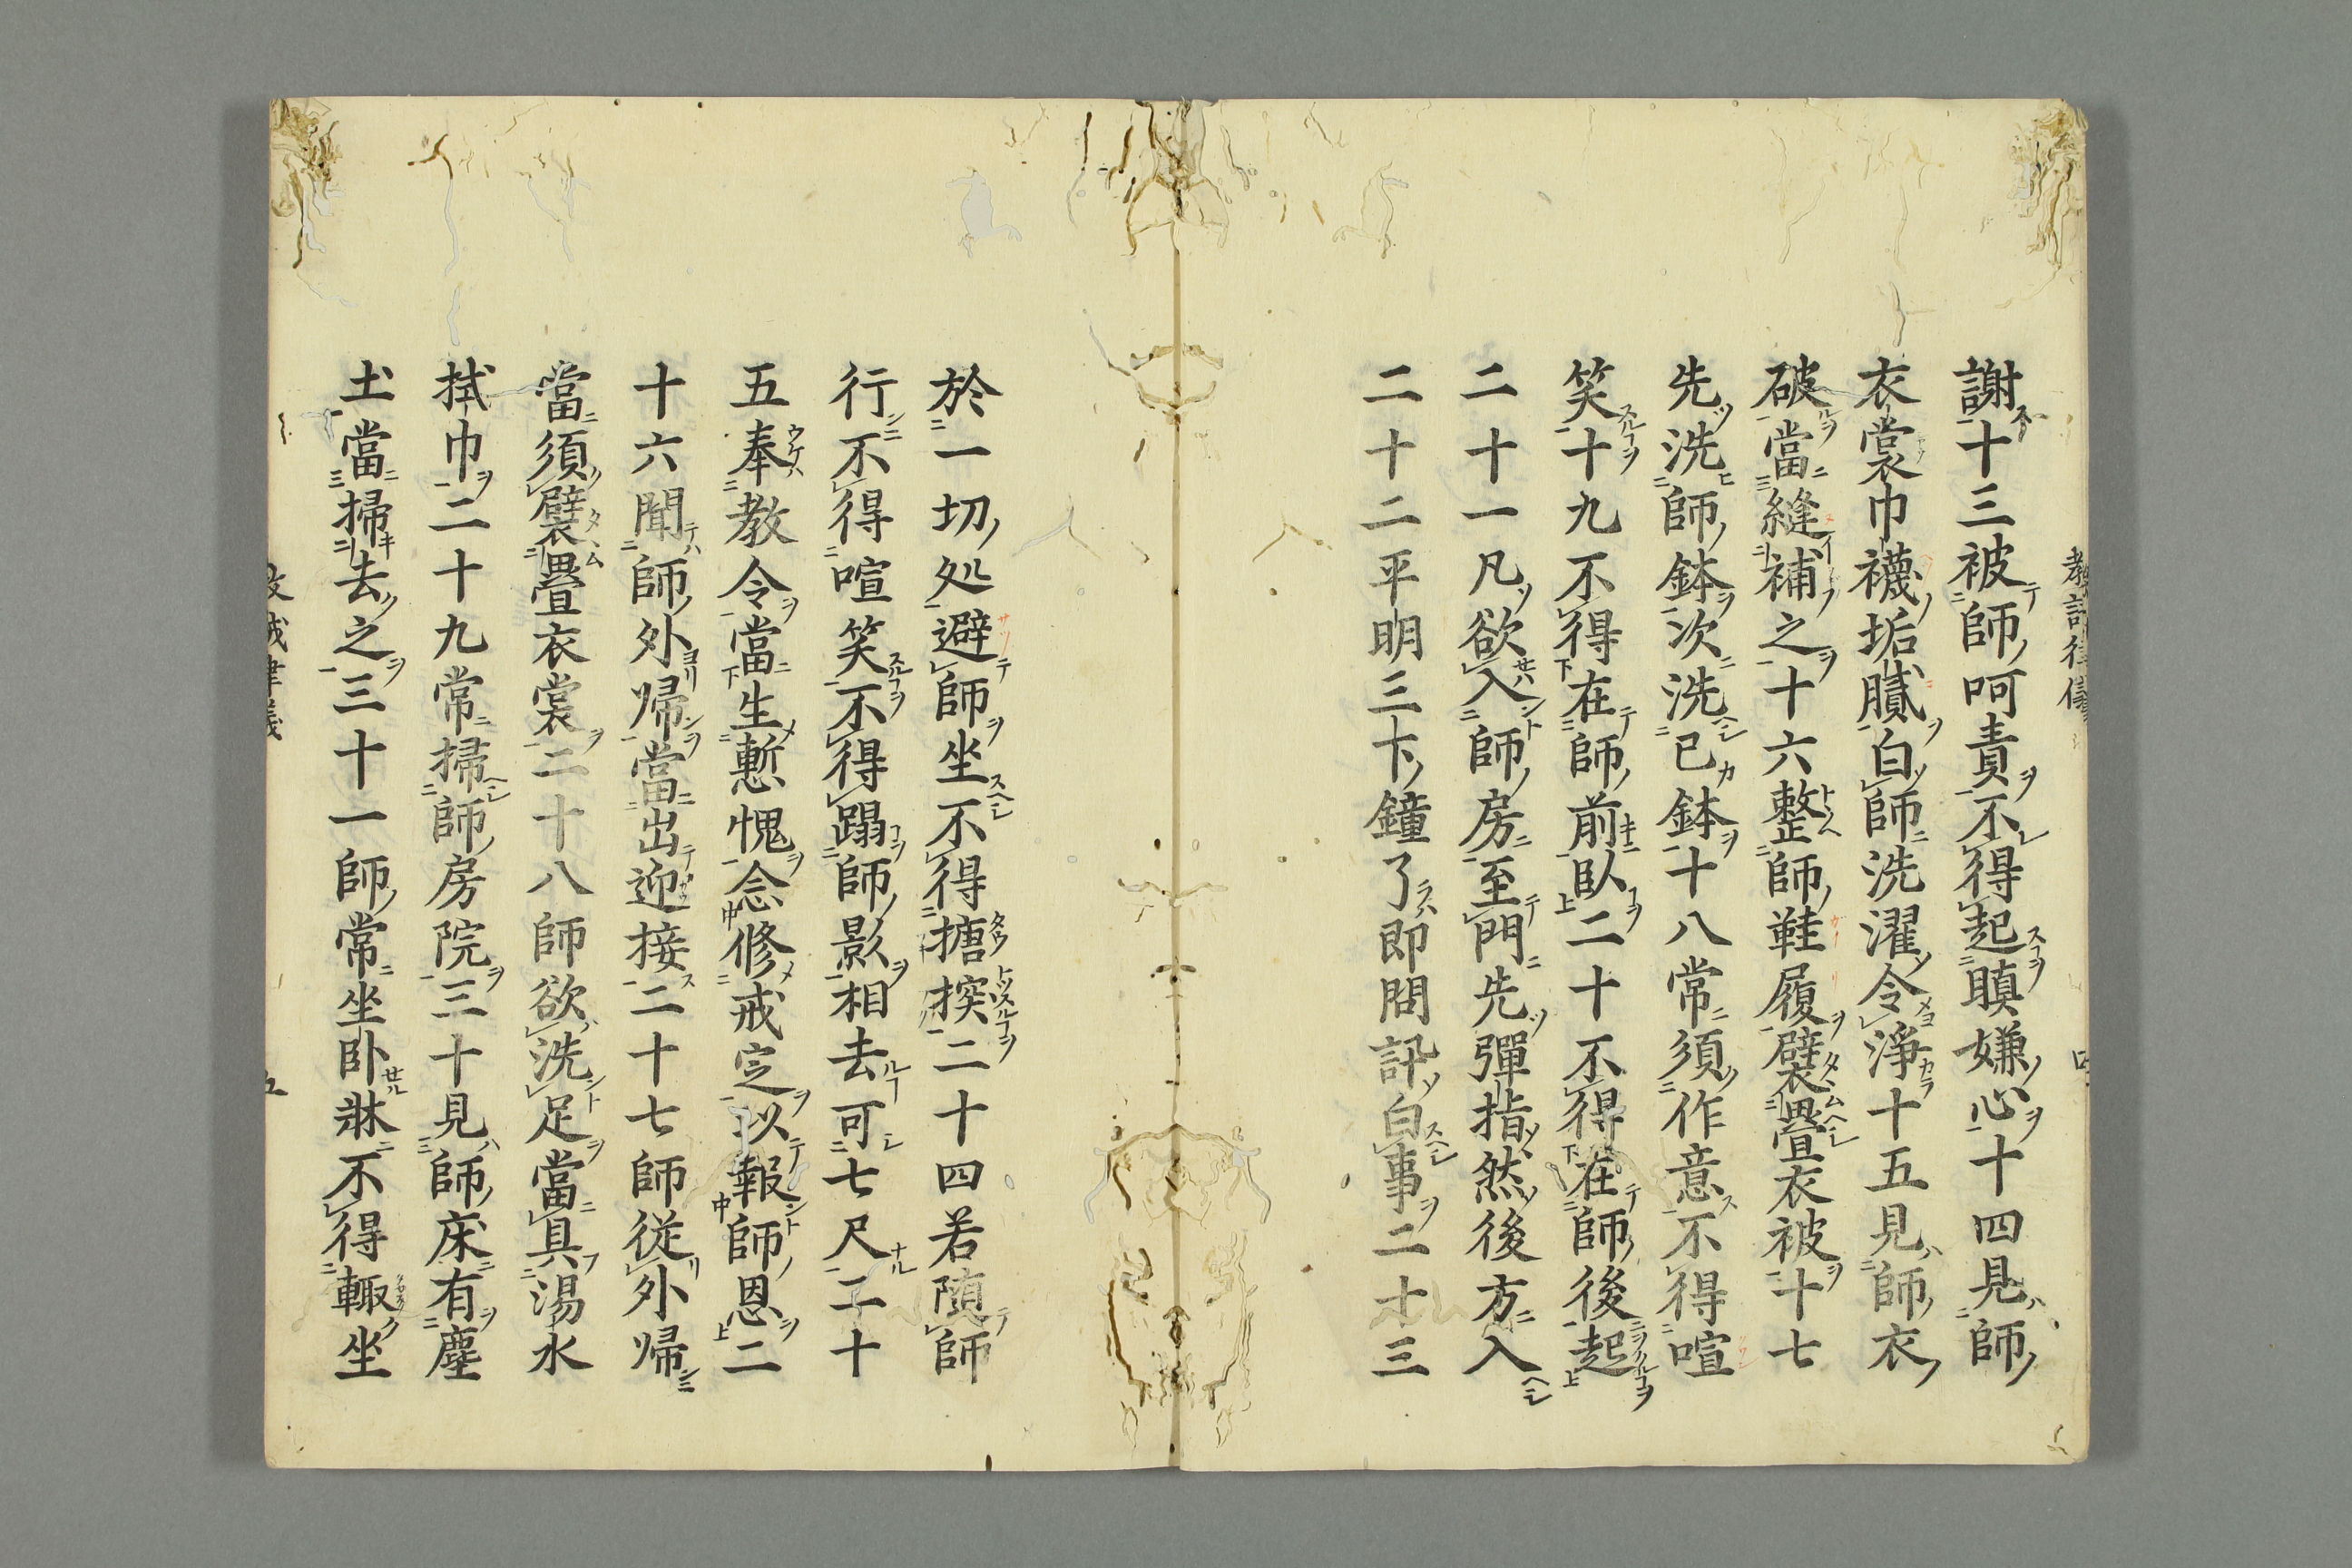 謝十三被師呵責不得起瞋嫌心十四見師
衣裳巾襪垢膩白師洗濯令淨十五見師衣
破當縫補之十六整師鞋履襞疊衣被十七
先洗師鉢次洗己鉢十八常須作意不得喧
笑十九不得在師前臥二十不得在師後起
二十一凡欲入師房至門先彈指然後方入
二十二平明三下鐘了即問訊白事二十三
於一切处避師坐不得搪揬二十四若随師
行不得喧笑不得蹋師影相去可七尺二十
五奉教令當生慙愧念修戒定以報師恩二
十六聞師外帰當出迎接二十七師従外帰
當須襞疊衣裳二十八師欲洗足當具湯水
拭巾二十九常掃師房院三十見師床有塵
土當掃去之三十一師常坐卧牀不得輙坐